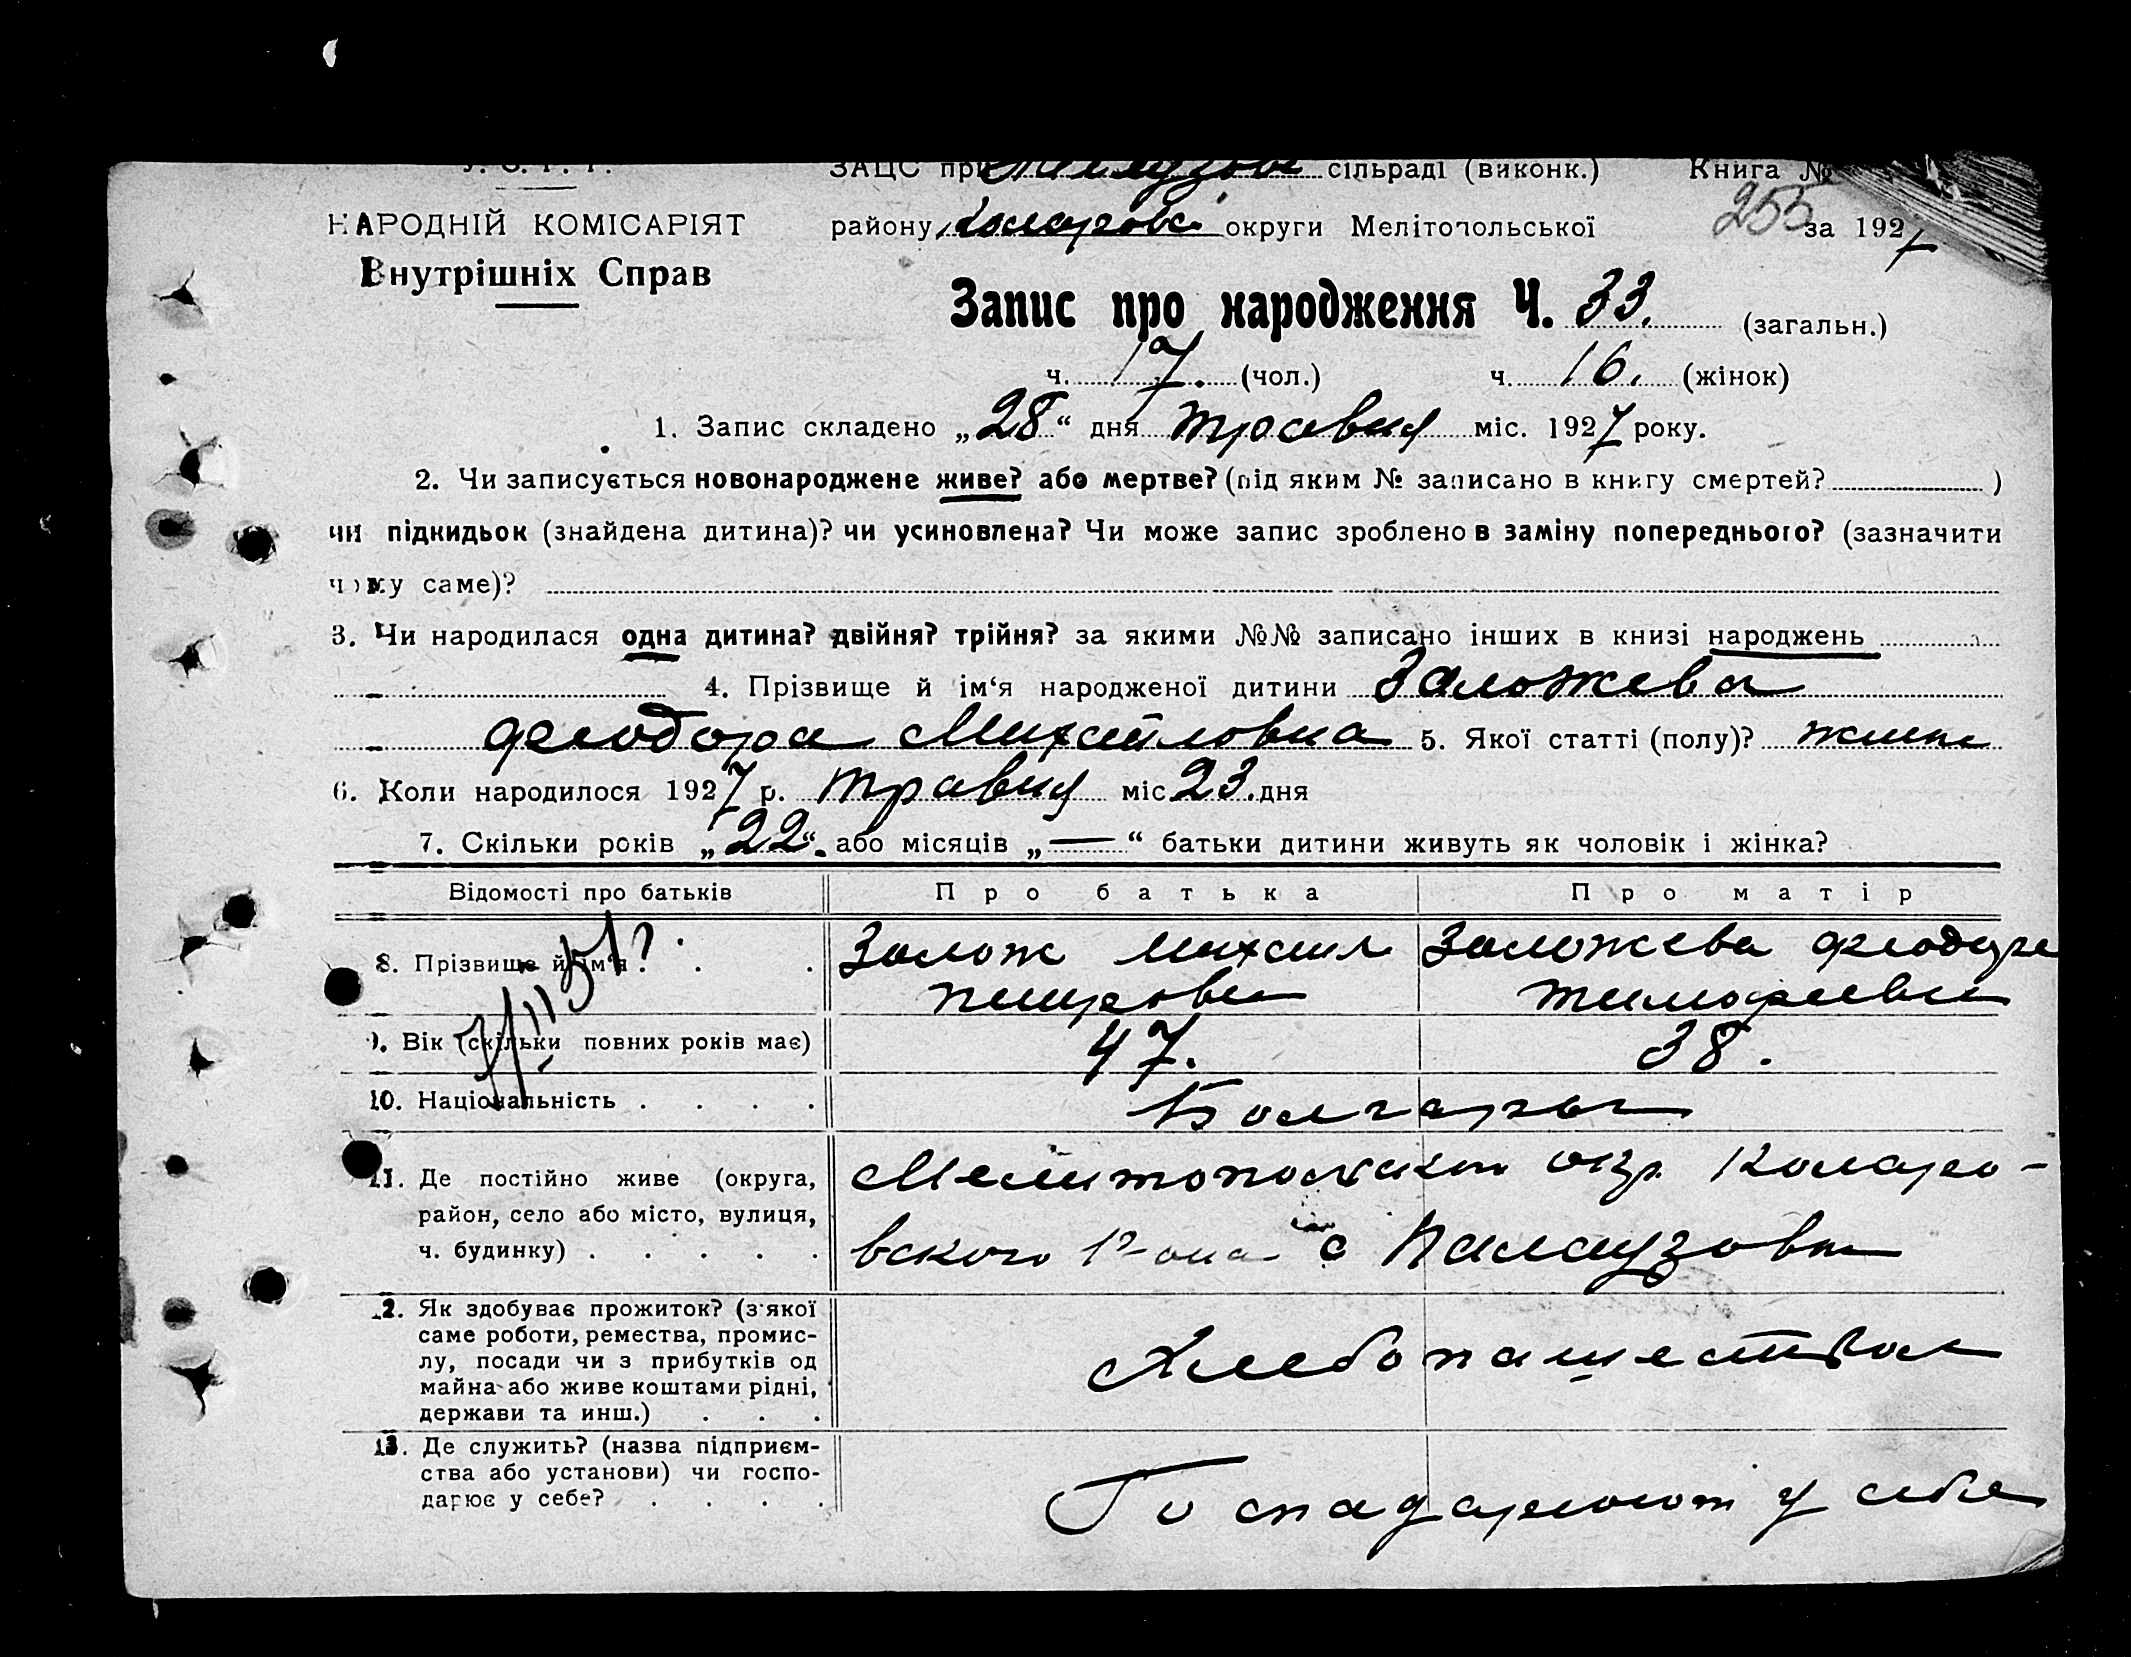 У. С. Р. Р.
ЗАЦС при Палаузов сільраді (виконк.) Книга №
255
НАРОДНІЙ КОМІСАРІЯТ
району Коларовс округи Мелітопольської за 1927
Внутрішніх Справ
Запис про народження Ч. 33. (загальн.)
ч. 17. (чол.) ч. 16. (жінок)
1. Запис складено „28“ дня травня міс. 1927 року.
2. Чи записується новонароджене живе? або мертве? (під яким № записано в книгу смертей? )
чи підкидьок (знайдена дитина)? чи усиновлена? Чи може запис зроблено в заміну попереднього? (зазначити
чому саме)?
3. Чи народилася одна дитина? двійня? трійня? за якими №№ записано інших в книзі народжень
4. Прізвище й ім‘я народженої дитини Заложева
Феодора Михайловна 5. Якої статті (полу)?
6. Коли народилося 1927 р. травня міс 23. дня
7. Скільки років „22“ або місяців „—“ батьки дитини живуть як чоловік і жінка?
Відомості про батьків Про батька Про матір
8. Прізвище й ім'я . . . Залож Михаил Заложева Феодора
Тимофеевна
9. Вік (скільки повних років має) 47. 38.
10. Національність . . . . Болгары
11. Де постійно живе (округа, Мелитопольской окр. Коларо-
район, село або місто, вулиця,
ч. будинку) . . . . . вского р-она с Палаузовка
12. Як здобуває прожиток? (з'якої
саме роботи, ремества, промис-
лу, посади чи з прибутків од Хлебопашеством
майна або живе коштами рідні,
держави та инш.) . . .
13. Де служить? (назва підприєм-
ства або установи) чи госпо-
дарює у себе? . . . . Господарюют у себе